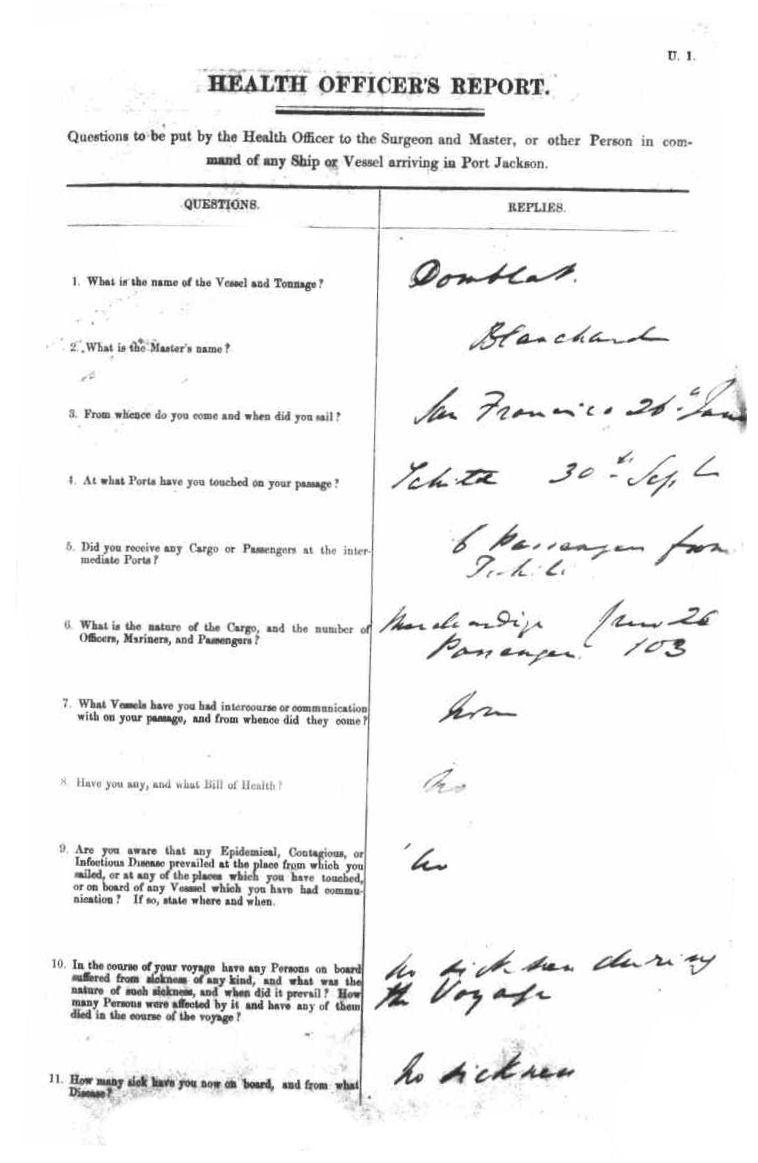 U. 1.
HEALTH OFFICER'S REPORT.
Questions to be put by the Health Officer to the Surgeon and Master, or other Person in com-
mand of any Ship or Vessel arriving in Port Jackson.
QUESTIONS.
REPLIES.
1. What is the name of the Vessel and Tonnage?
2. What is the Master's name?
Blanchard
3. From whence do you come and when did you sail?
San Francisco 26th June
4. At what Ports have you touched on your passage?
30th Sept
5. Did you receive any Cargo or Passengers at the inter-
mediate Ports?
6 Passengers from
6. What is the nature of the Cargo, and the number of
Officers, Mariners, and Passengers?
Merchandize 26
Passengers 103
7. What Vessels have you had intercourse or communication
with on your passage, and from whence did they come?
None
8. Have you any, and what Bill of Health?
No
9. Are you aware that any Epidemical, Contagious, or
Infectious Disease prevailed at the place from which you
sailed, or at any of the places which you have touched,
or on board of any Vesssel which you have had commu-
nication? If so, state where and when.
No
10. In the course of your voyage have any Persons on board
suffered from sickness of any kind, and what was the
nature of such sickness, and when did it prevail? How
many Persons were affected by it and have any of them
died in the course of the voyage?
No sickness during
the Voyage
11. How many sick have you now on board, and from what
Disease?
No sickness